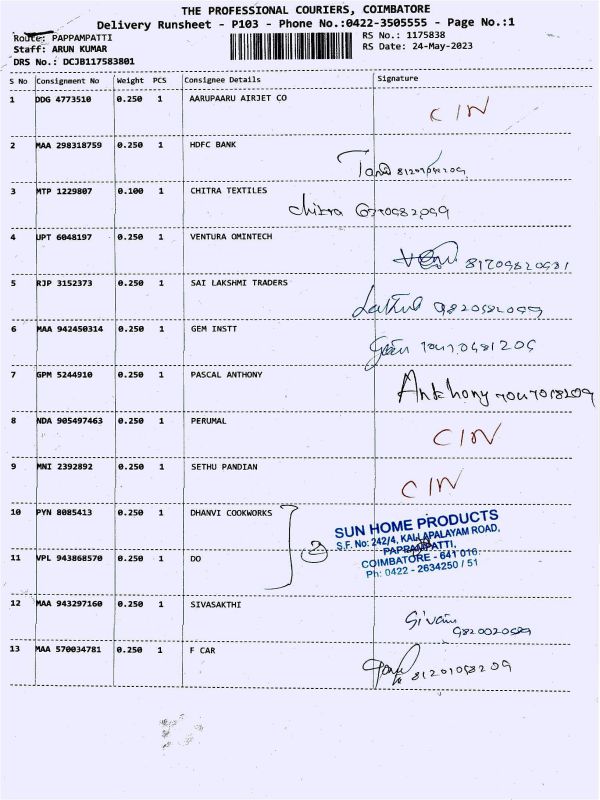 THE PROFESSIONAL COURIERS, COIMBATORE
Delivery Runsheet - P103 - Phone No.:0422-3505555 - Page No.:1
Route: PAPPAMPATTI RS No.: 1175838
Staff: ARUN KUMAR RS Date: 24-May-2023
DRS No.: DCJB117583801
S No Consignment No Weight PCS Consignee Details Signature
1 DDG 4773510 0.250 1 AARUPAARU AIRJET CO
C/N
2 MAA 298318759 0.250 1 HDFC BANK
3 MTP 1229807 0.100 1 CHITRA TEXTILES
chitra
4 UPT 6048197 0.250 1 VENTURA OMINTECH
5 RJP 3152373 0.250 1 SAI LAKSHMI TRADERS
6 MAA 942450314 0.250 1 GEM INSTT
7 GPM 5244910 0.250 1 PASCAL ANTHONY
Ankhony
8 NDA 905497463 0.250 1 PERUMAL
C/N
9 MNI 2392892 0.250 1 SETHU PANDIAN
C/N
10 PYN 8085413 0.250 1 DHANVI COOKWORKS
2
SUN HOME PRODUCTS
S.F. No: 242/4, KALLAPALAYAM ROAD,
PAPPAMPATTI,
COIMBATORE - 641 016.
Ph: 0422 - 2634250 / 51
11 VPL 943868570 0.250 1 DO
12 MAA 943297160 0.250 1 SIVASAKTHI
13 MAA 570034781 0.250 1 F CAR